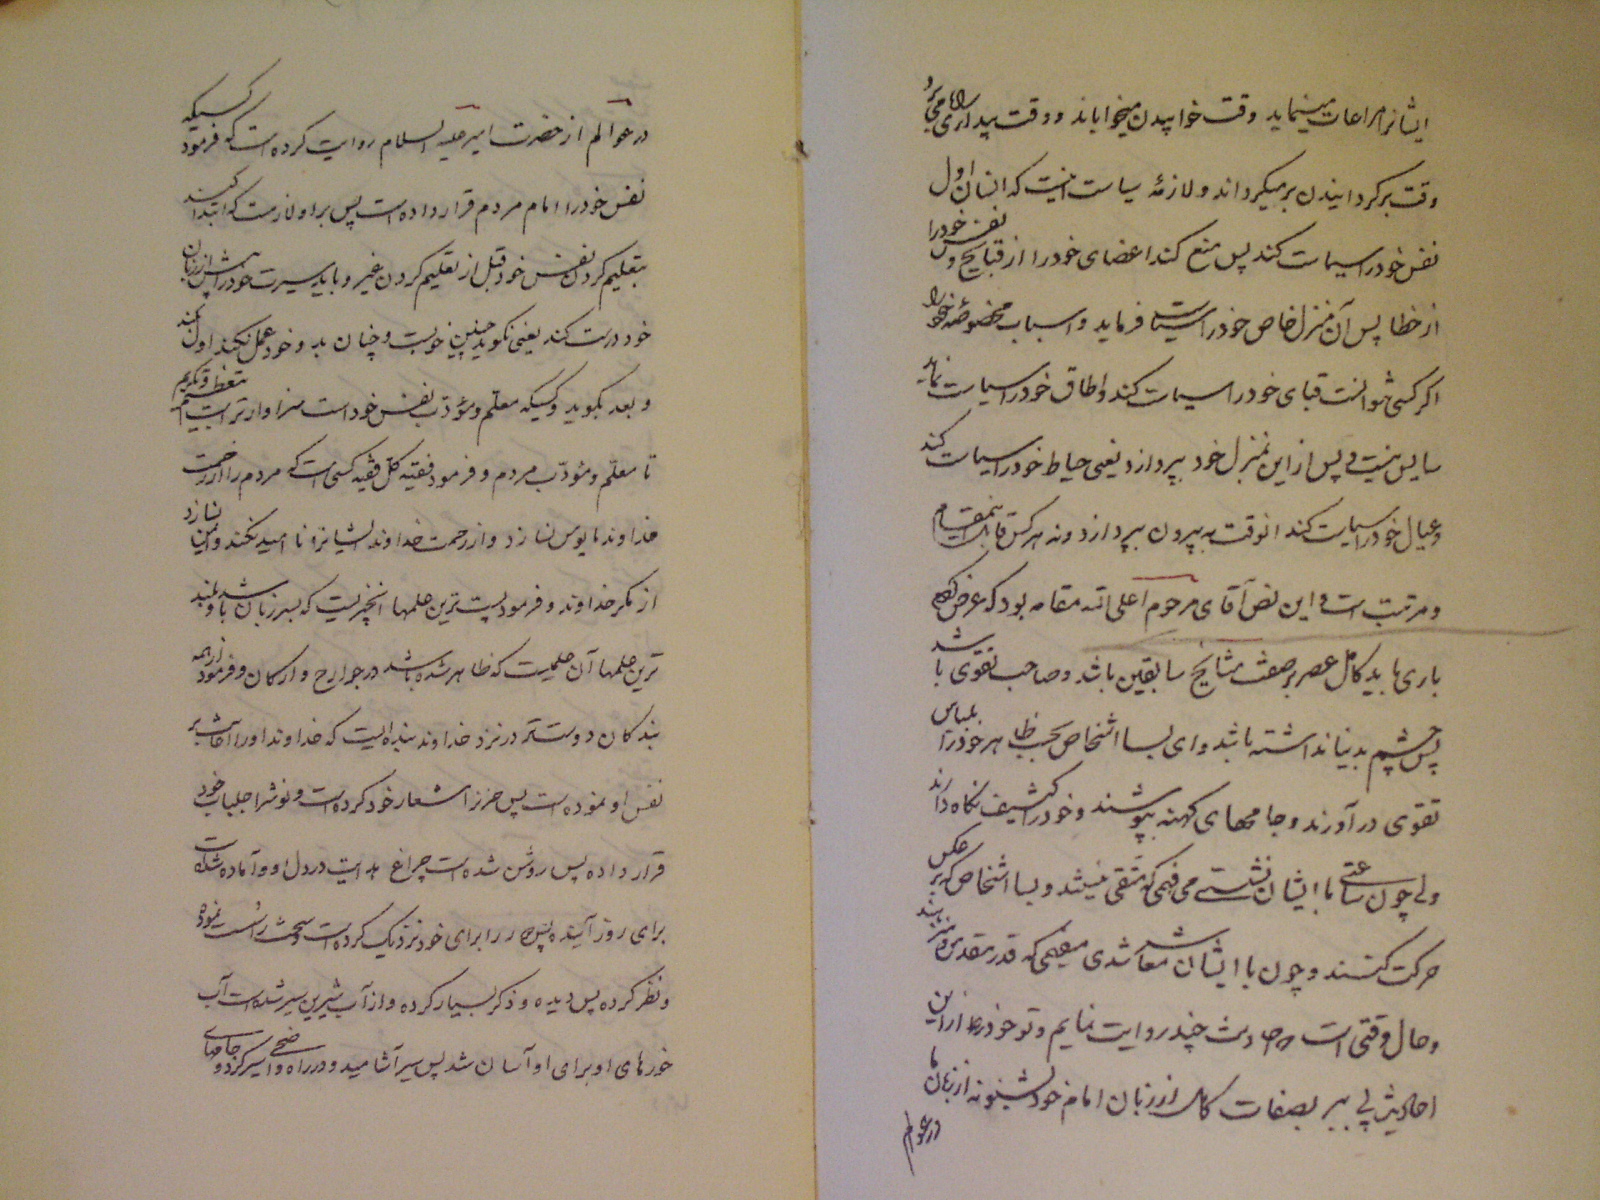 ایشانرا مراعات مینماید وقت خوابیدن میخواباند و وقت بیداری میبرد
وقت برگردانیدن برمیگرداند و لازمهٔ سیاست اینست که انسان اول
نفس خود را سیاست کند پس منع کند اعضای خود را از قبایح و نفس خود را
از خطا پس آن منزل خاص خود را سیاست فرماید و اسباب مخصوصه خود را
اگر کسی نتوانست قبای خود را سیاست کند و اطاق خود را سیاست نماید
سایس نیست و پس از این بمنزل خود بپردازد یعنی حیاط خود را سیاست کند
و عیال خود را سیاست کند انوقت به بیرون بپردازد و نه هر کس قابل اینمقام
و مرتبت است و این نص آقای مرحوم اعلی الله مقامه بود که عرض کردم
باری باید کامل عصر بر صفت مشایخ سابقین باشد و صاحب تقوی باشد
چشم بدنیا نداشته باشد و ای بسا اشخاص بحسب ظاهر خود را بلباس
تقوی در آورند و جامهای کهنه بپوشند و خود را کثیف نگاه دارند
ولی چون ساعتی با ایشان نشستی می فهمی که متقی نیستند و بسا اشخاص که بر عکس
حرکت کنند و چون با ایشان معاشر شدی میفهمی که قدر مقدس و منزهند
و حال وقتی است که حدیث چند روایت نمایم و تو خود از این
احادیث پی ببر بصفات کامل از زبان امام خود بشنو نه از زبان ما
در عوالم
در عوالم از حضرت امیر علیه السلام روایت کرده است که فرمود کسیکه
نفس خود را امام مردم قرار داده است پس بر او لازمست که ابتدا کند
بتعلیم کردن نفس خود قبل از تعلیم کردن غیر و باید سیرت خود را پیش از زبان
خود درست کند یعنی نگوید چنین خوبست و چنان بد و خود عمل نکند اول کند
و بعد بگوید و کسیکه معلم و مؤدب نفس خود است سزاوارتر است بتعظیم و تکریم
تا معلم و مؤدب مردم و فرمود فقیه کل فقیه کسی است که مردم را از رحمت
خداوند مایوس نسازد و از رحمت خداوند ایشانرا نا امید نکند و ایمن نسازد
از مکر خداوند و فرمود پست ترین علمها آنچیزیست که بر زبان باشد و بلند
ترین علمها آن علمیست که ظاهر شده باشد در جوارح و ارکان و فرمود از همه
بندگان دوستتر در نزد خداوند بنده ایست که خداوند او را اعانت بر
نفس او نموده است پس حزن را شعار خود کرده است و خوف را جلباب خود
قرار داده پس روشن شده است چراغ هدایت در دل او و آماده شده است
برای روز آینده پس دور را برای خود نزدیک کرده است و سخت را سست نموده
و نظر کرده پس دیده و ذکر بسیار کرده و از آب شیرین سیر شده است آب
خورهای او برای او آسان شد پس سیر آشامید و در راه واضحی سیر کرد و جامهای